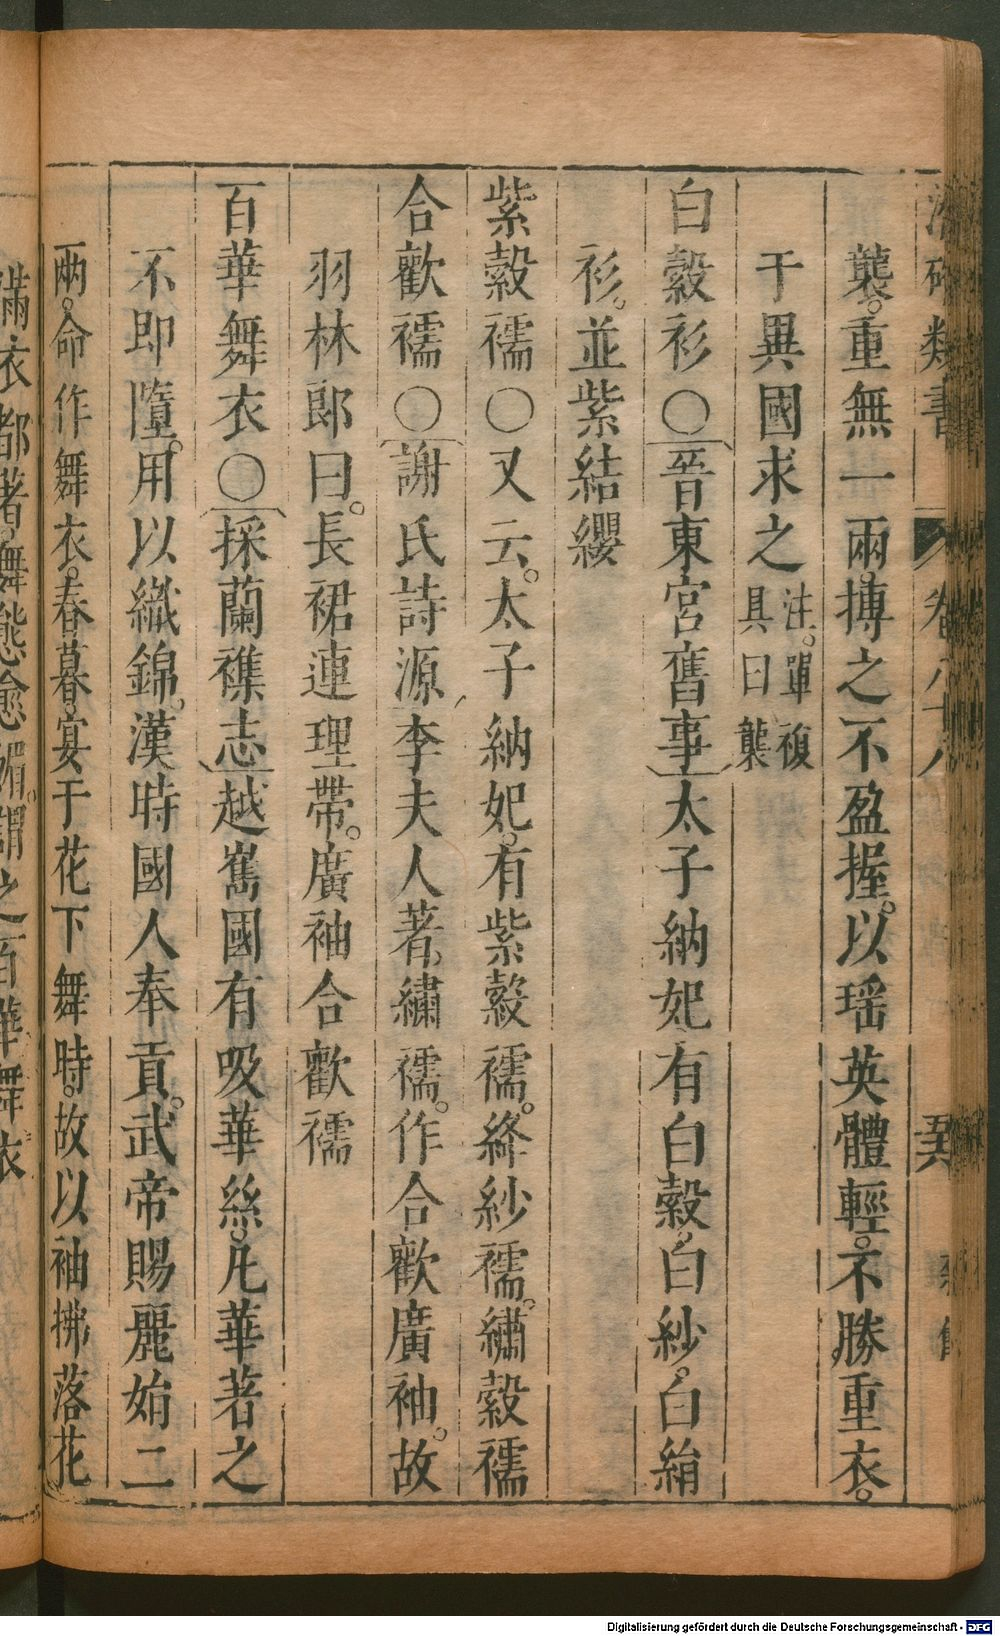 類書 卷八十八
襲。重無一兩。搏之不盈握。以瑶英體輕。不勝重衣。
于異國求之 注。單複具曰襲
白縠衫○晉東宮舊事太子納妃有白縠。白紗。白絹
衫。並紫結纓
紫縠襦○又云。太子納妃。有紫縠襦。絳紗襦。繡縠襦
合歡襦○謝氏詩源李夫人著繡襦。作合歡廣袖。故
羽林郎曰。長裙連理帶。廣袖合歡襦
百華舞衣○採蘭襍志越嶲國有吸華絲。凡華著之
不即墮。用以織錦。漢時國人奉貢。武帝賜麗娟二
兩。命作舞衣。春暮。宴于花下舞時。故以袖拂落花
滿衣都著。舞態愈媚。謂之百華舞衣
Digitalisierung gefördert durch die Deutsche Forschungsgemeinschaft - DFG